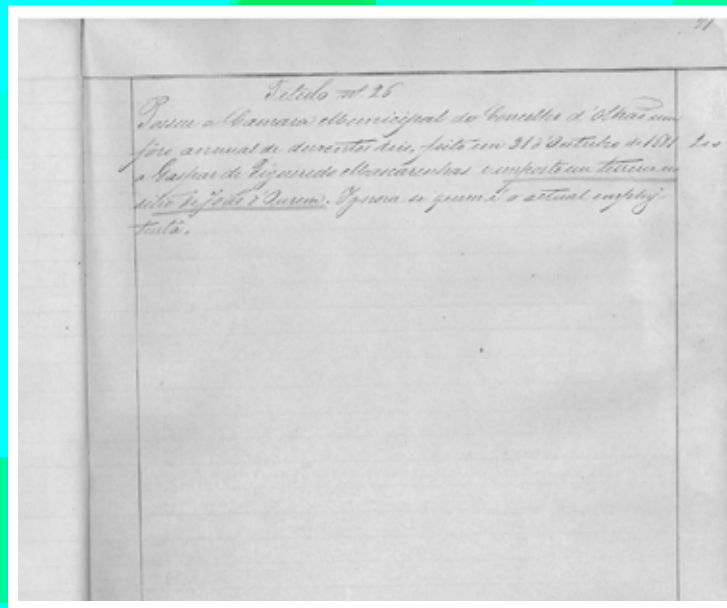 Titulo nº 26
Possue a Camara Municipal do Concelho d'Olhão um
fôro annual de duzentos reis, feito em 21 d'Outubro de 200
a Gaspar de Figueredo Mascarenhas e imposto em terreno no
sitio de João d'Ourem. Ignora-se quem é o actual emphy-
teuta.